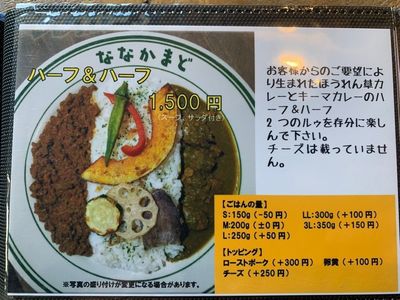 ななかまど
ハーフ＆ハーフ
1,500 円
（スープ、サラダ付き）
お客様からのご要望によ
り生まれたほうれん草カ
レーとキーマカレーのハ
ーフ＆ハーフ
２つのルゥを存分に楽し
んで下さい。
チーズは載っていませ
ん。
【ごはんの量】
S:150g（-50円） LL:300g（＋100円）
M:200g（±0円） 3L:350g（＋150円）
L:250g（＋50円）
【トッピング】
ローストポーク（＋300円） 卵黄（＋100円）
チーズ（＋250円）
※写真の盛り付けが変更になる場合があります。